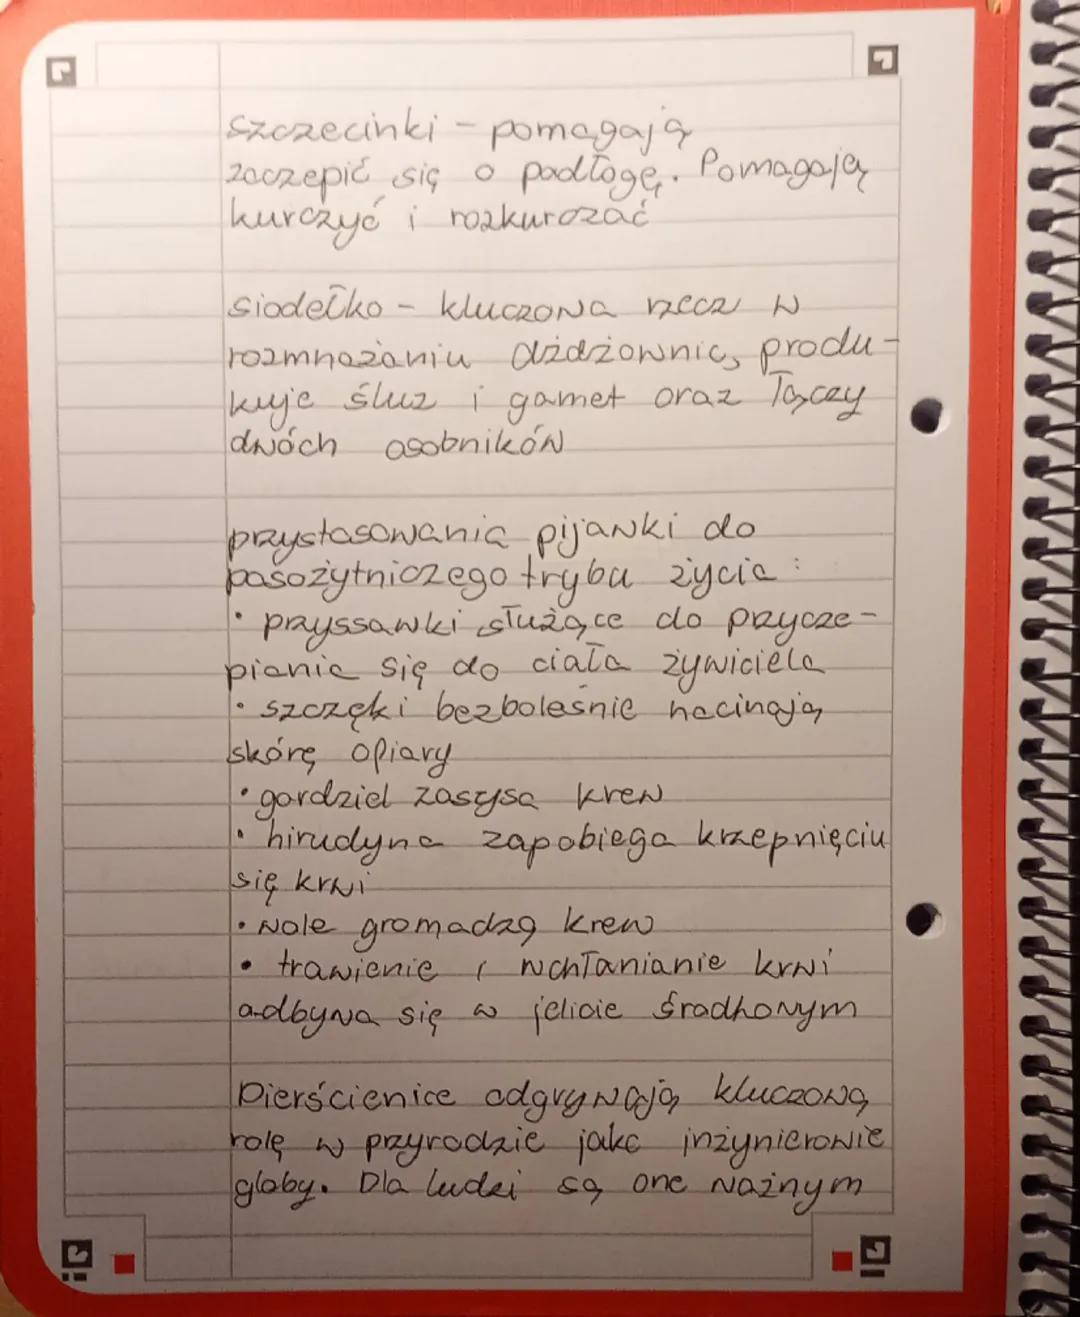 szczecinki - pomagają
zaczepić się o podłogę. Pomagają
kurczyć i rozkurczać
siodełko - kluczowa rzecz w
rozmnażaniu dżdżownic, produ-
kuje śluz i gamet oraz łączy
dwóch osobników
przystosowania pijawki do
pasożytniczego trybu życia:
• przyssawki służące do przycze-
piania się do ciała żywiciela
• szczęki bezboleśnie nacinają
skórę ofiary
• gardziel zasysa krew
• hirudyna zapobiega krzepnięciu
się krwi
• wole gromadzą krew
• trawienie i wchłanianie krwi
odbywa się w jelicie środkowym
Pierścienice odgrywają kluczową
rolę w przyrodzie jako inżynierowie
gleby. Dla ludzi są one ważnym